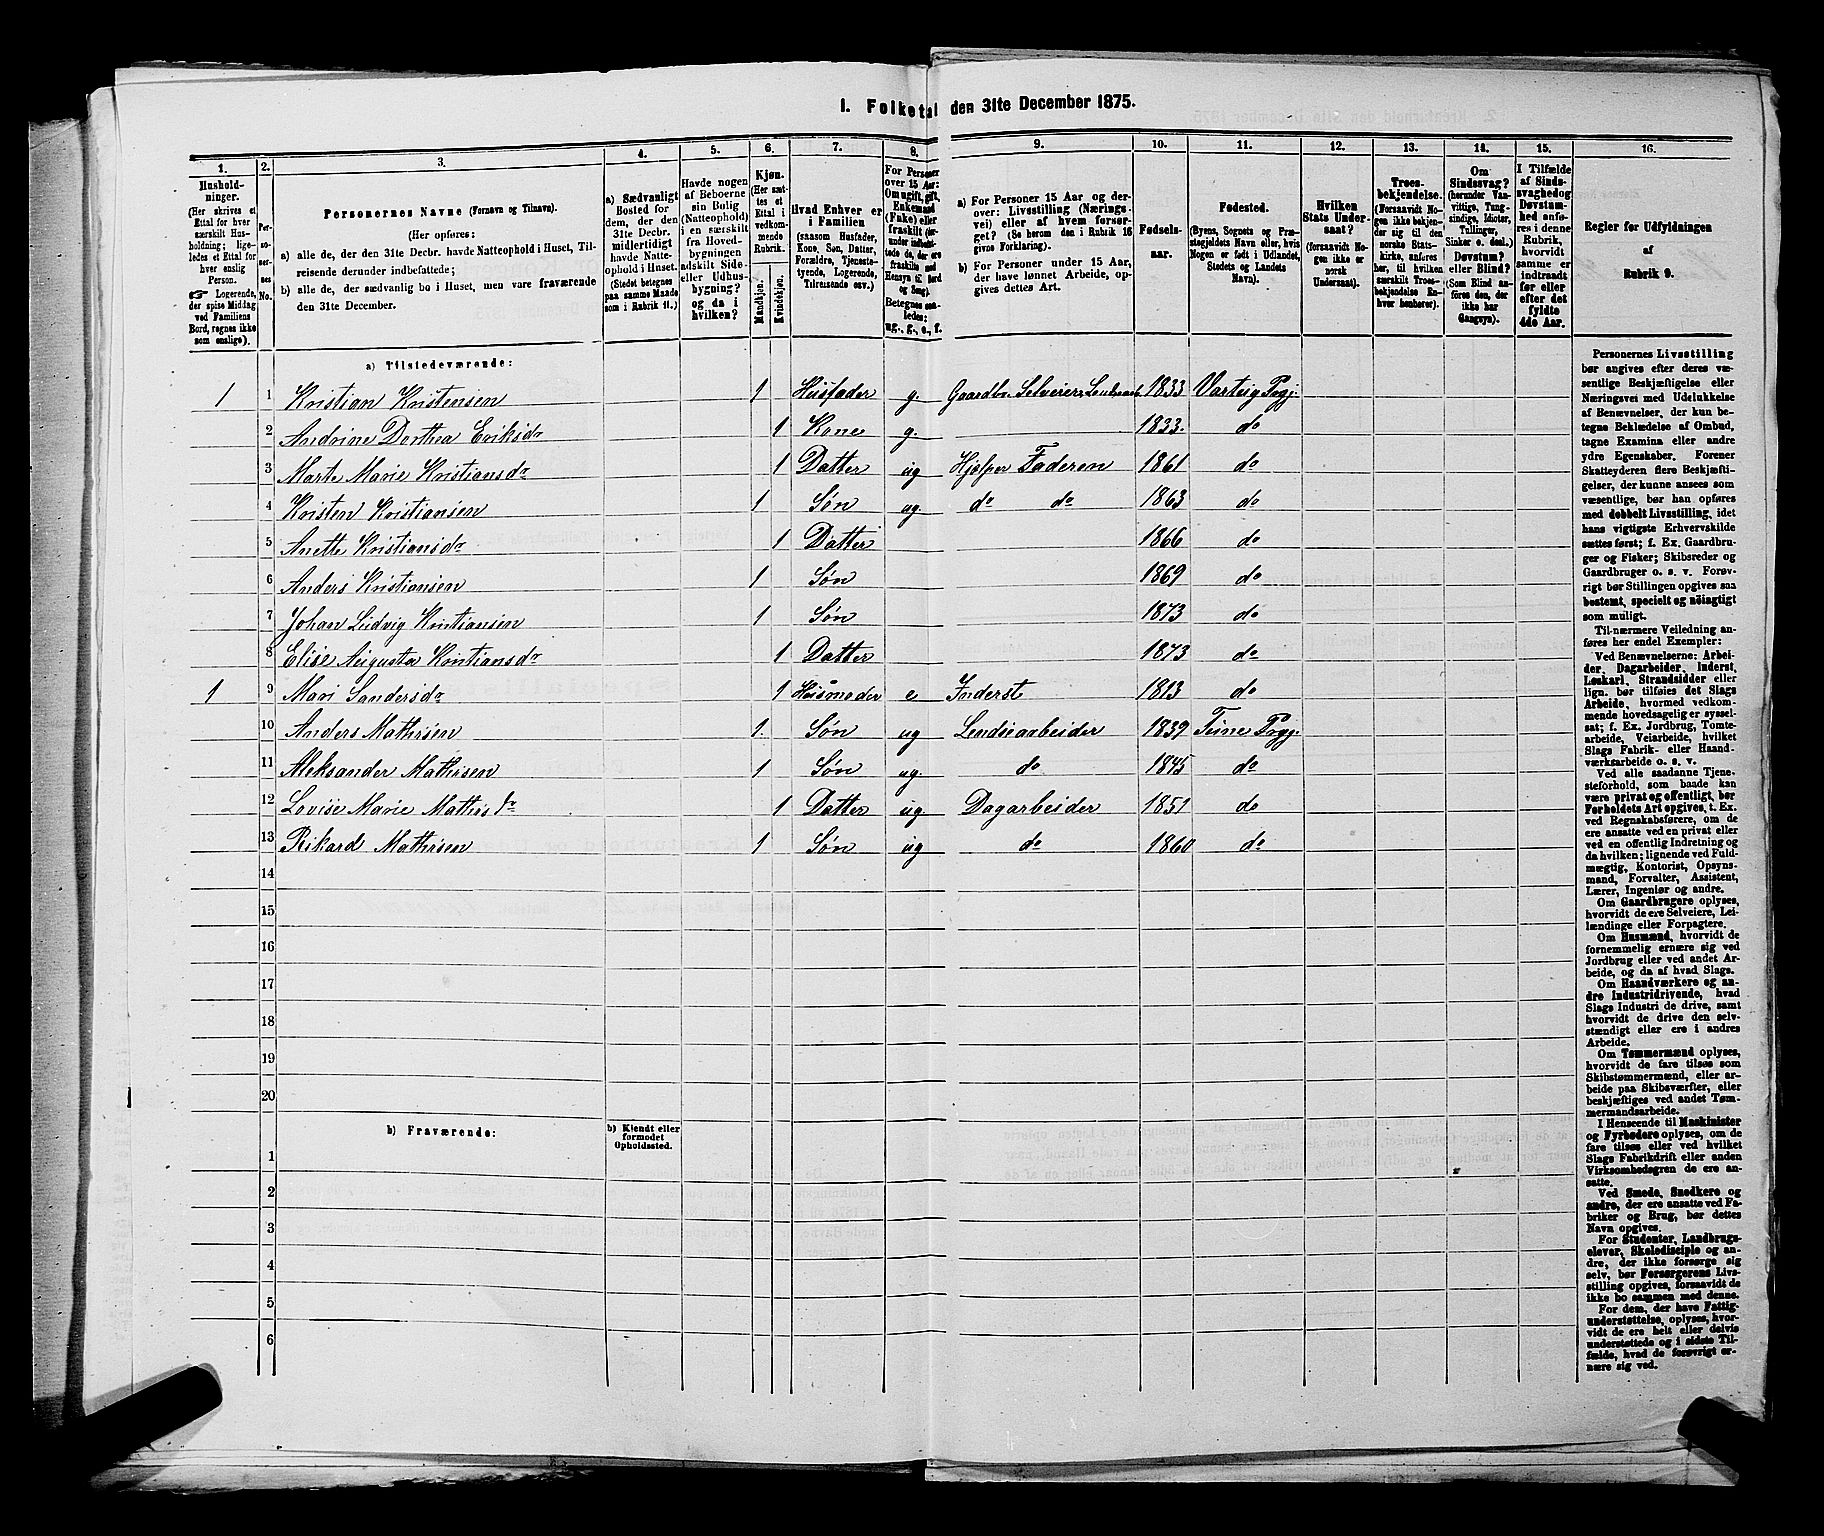 1. Folketal den 31te December 1875.
1. 2. 3. 4. 5. 6. 7. 8. 9. 10. 11. 12. 13. 14. 15. 16.
Hushold-
ninger.
(Her skrives et
Ettal for hver
særskilt Hus-
holdning; lige-
ledes et Ettal for
hver enslig
Person.
☞ Logerende,
der spise Middag
ved Familiens
Bord, regnes ikke
som enslige).
Per-
so-
ner-
nes
No.
Personernes Navne (Fornavn og Tilnavn).
(Her opføres:
a) alle de, der den 31te Decbr. havde Natteophold i Huset, Til-
reisende derunder indbefattede;
b) alle de, der sædvanlig bo i Huset, men vare fraværende
den 31te December.
a) Sædvanligt
Bosted for
dem, der den
31te Decbr.
midlertidigt
havde Natte-
ophold i Huset.
(Stedet betegnes
paa samme Maade
som i Rubrik 11.)
Havde nogen
af Beboerne
sin Bolig
(Natteophold)
i en særskilt
fra Hoved-
bygningen
adskilt Side-
eller Udhus-
bygning?
og da i
hvilken?
Kjøn.
(Her sæt-
tes et
Ettal i
vedkom-
mende
Rubrik.
Mandkjøn.
Kvindekjøn.
Hvad Enhver er
i Familien
(saasom Husfader,
Kone, Søn, Datter,
Forældre, Tjeneste-
tyende, Logerende,
Tilreisende osv.)
For Personer
over 15 Aar:
Om ugift, gift,
Enkemand
(Enke) eller
fraskilt (der-
under indbefat-
tede de, der ere
fraskilte med
Hensyn til Bord
og Seng).
Betegnes saa-
ledes:
ug., g., e., f.
a) For Personer 15 Aar og der-
over: Livsstilling (Nærings-
vei) eller af hvem forsør-
get? (Se herom den i Rubrik 16
givne Forklaring).
b) For Personer under 15 Aar,
der have lønnet Arbeide, op-
gives dettes Art.
Fødsels-
aar.
Fødested.
(Byens, Sognets og Præ-
stegjeldets Navn eller, hvis
Nogen er født i Udlandet,
Stedets og Landets
Navn).
Hvilken
Stats Under-
saat?
(forsaavidt No-
gen ikke er
norsk
Undersaat).
Troes-
bekjendelse.
(Forsaavidt No-
gen ikke bekjen-
der sig til den
norske Stats-
kirke, anføres
her, til hvilken
særskilt Troes-
bekjendelse En-
hver henhører).
Om
Sindssvag?
(herunder Van-
vittige, Tung-
sindige, Idioter,
Tullinger,
Sinker o. desl.)
Døvstum?
eller Blind?
(Som Blind an-
føres den, der
ikke har
Gangsyn).
I Tilfælde
af Sinds-
svaghed og
Døvstum-
hed anfø-
res i denne
Rubrik,
hvorvidt
samme er
indtraadt
før eller
efter det
fyldte
4de Aar.
Regler for Udfyldningen
af
Rubrik 9.
a) Tilstedeværende:
1 1 Kristian Kristensen 1 Husfader g. Gaardbr. Selveier, 1833 Varteig Prgj.
2 Andrine Dorthea Eriksdr 1 Kone g. 1833. do
3 Marte Marie Kristiansdr 1 Datter ug Hjelper Faderen 1861 do
4 Kristen Kristiansen 1 Søn ug. do do 1863 do
5 Anette Kristiansdr 1 Datter 1866 do
6 Anders Kristiansen 1 Søn 1869 do
7 Johan Ludvig Kristiansen 1 Søn 1873 do
8 Elise Augusta Kristiansdr 1 Datter 1873 do
1 9 Mari Sandersdr 1 Husmoder e Inderst 1813 do
10 Anders Mathisen 1. Søn ug Lendsearbeider 1839 Tune Prgj.
11 Aleksander Mathisen 1 Søn ug. do 1845 do
12 Lovise Marie Mathisdr 1 Datter ug. Dagarbeider 1851 do
13 Rikard Mathisen 1 Søn ug do 1860 do
14
15
16
17
18
19
20
b) Fraværende:
b) Kjendt eller
formodet
Opholdssted.
1
2
3
4
5
6
Personernes Livsstilling
bør angives efter deres væ-
sentlige Beskjæftigelse eller
Næringsvei med Udelukkelse
af Benævnelser, der kun be-
tegne Beklædelse af Ombud,
tagne Examina eller andre
ydre Egenskaber. Forener
Skatteyderen flere Beskjæfti-
gelser, der kunne ansees som
væsentlige, bør han opføres
med dobbelt Livsstilling, idet
hans vigtigste Erhvervskilde
sættes først; f. Ex. Gaardbru-
ger og Fisker; Skibsreder og
Gaardbruger o. s. v. Forøv-
rigt bør Stillingen opgives saa
bestemt, specielt og nøiagtigt
som muligt.
Til nærmere Veiledning an-
føres her endel Exempler:
Ved Benævnelserne: Arbei-
der, Dagarbeider, Inderst,
Løskarl, Strandsidder eller
lign. bør tilføies det Slags
Arbeide, hvormed vedkom-
mende hovedsagelig er syssel-
sat; f. Ex. Jordbrug, Tomte-
arbeide, Veiarbeide, hvilket
Slags Fabrik- eller Haand-
værksarbeide o. s. v.
Ved alle saadanne Tjene-
steforhold, som baade kan
være privat og offentligt, bør
Forholdets Art opgives, t. Ex.
ved Regnskabsførere, om de
ere ansatte ved en privat eller
ved en offentlig Indretning og
da hvilken; lignende ved Fuld-
mægtig, Kontorist, Opsyns-
mand, Forvalter, Assistent,
Lærer, Ingeniør og andre.
Om Gaardbrugere oplyses,
hvorvidt de ere Selveiere, Lei-
lændinge eller Forpagtere.
Om Husmænd, hvorvidt de
fornemmelig ernære sig ved
Jordbrug eller ved andet Ar-
beide, og da af hvad Slags.
Om Haandværkere og an-
dre Industridrivende, hvad
Slags Industri de drive, samt
hvorvidt de drive den selv-
stændigt eller ere i andres
Arbeide.
Om Tømmermænd oplyses,
hvorvidt de fare tilsøs som
Skibstømmermænd, eller ar-
beide paa Skibsværfter, eller
beskjæftiges ved andet Tøm-
mermandsarbeide.
I Henseende til Maskinister
og Fyrbødere oplyses, om de
fare tilsøs eller ved hvilket
Slags Fabrikdrift eller anden
Virksomhedsgren de ere an-
satte.
Ved Smede, Snedkere og
andre, der ere ansatte ved Fa-
briker og Brug, bør dettes
Navn opgives.
For Studenter, Landbrugs-
elever, Skoledisciple og an-
dre, der ikke forsørge sig
selv, bør Forsørgerens Livs-
stilling opgives, forsaavidt de
ikke bo sammen med denne.
For dem, der have Fattig-
understøttelse, oplyses, hvor-
vidt de ere helt eller delvis
understøttede og i sidste Til-
fælde, hvad de forøvrigt er-
nære sig ved.